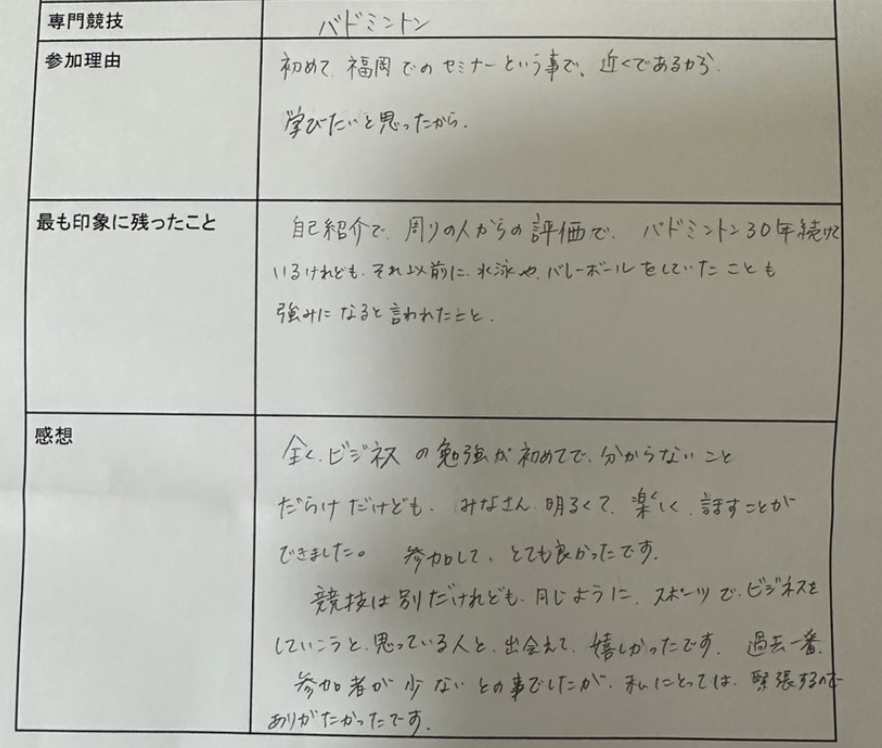 専門競技
バドミントン
参加理由
初めて、福岡でのセミナーという事で、近くであるから、
学びたいと思ったから。
最も印象に残ったこと
自己紹介で、周りの人からの評価で、バドミントン30年続けて
いるけれども、それ以前に、水泳や、バレーボールをしていたことも
強みになると言われたこと。
感想
全く、ビジネスの勉強が初めてで、分からないこと
だらけだけども、みなさん、明るくて、楽しく、話すことが
できました。参加して、とても良かったです。
競技は別だけれども、同じように、スポーツで、ビジネスを
していこうと、思っている人と、出会えて、嬉しかったです。過去一番、
参加者が少ないとの事でしたが、私にとっては、緊張するので
ありがたかったです。